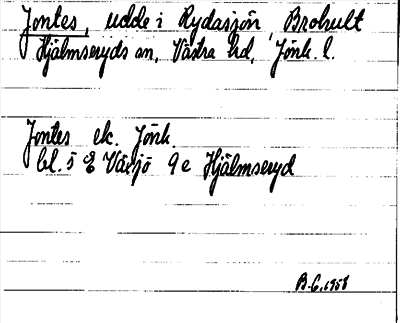 Jontes, udde i Rydasjön, Brohult
Hjälmseryds sn, Västra hd, Jönk. l.
Jontes ek. Jönk.
bl. 5 E Växjö 9 e Hjälmseryd
B.G. 1958